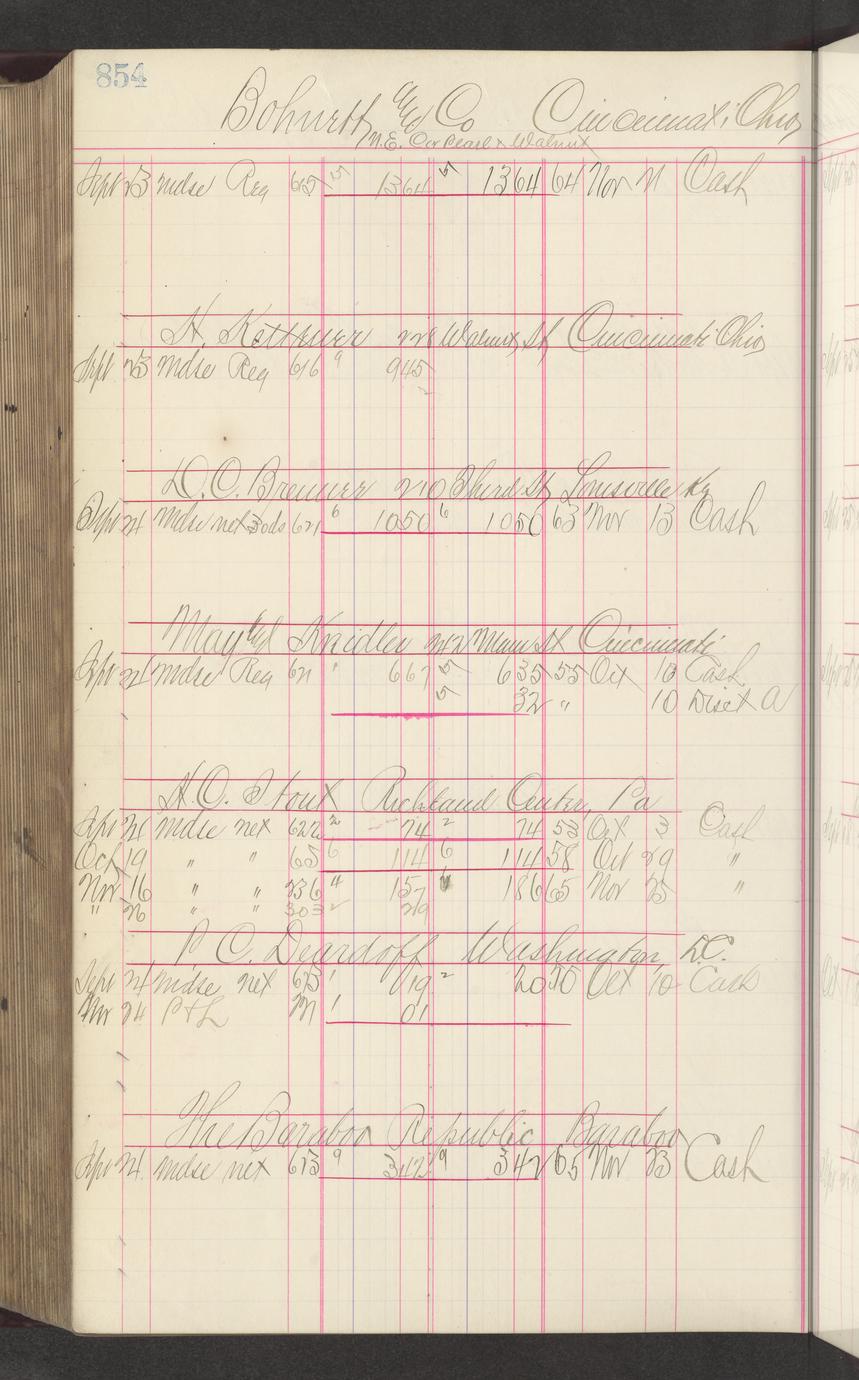 854
Bohnett and Co Cincinnati Ohio
N.E. Cor Pearl & Walnut
Sept 23 Mdse Reg 615 5 1364 5 1364 64 Nov 21 Cash
H. Kettmer 228 Walnut St Cincinnati Ohio
Sept 23 Mdse Reg 616 9 945
D.O. Brenner 210 Third St Louisville Ky
Sept 24 Mdse net 30ds 621 6 1050 6 1050 63 Nov 13 Cash
May and Kridler 242 Main St Cincinnati
Sept 24 Mdse Reg 621 " 667 5 635 55 Oct 10 Cash
5 32 " 10 Disct A
H.O. Stout Richland Center, Pa
Sept 24 Mdse net 622 2 74 2 74 53 Oct 3 Cash
Oct 19 " " 65 6 114 6 114 58 Oct 29 "
Nov 16 " " 236 4 157 186 65 Nov 25 "
" 26 " " 303 2 29
P O. Deardoff Washington, D.C.
Sept 24 Mdse net 623 1 19 2 20 50 Oct 10 Cash
Nov 24 P & L 21 1 01
The Baraboo Republic Baraboo
Sept 24 Mdse net 623 9 342 9 342 65 Nov 23 Cash